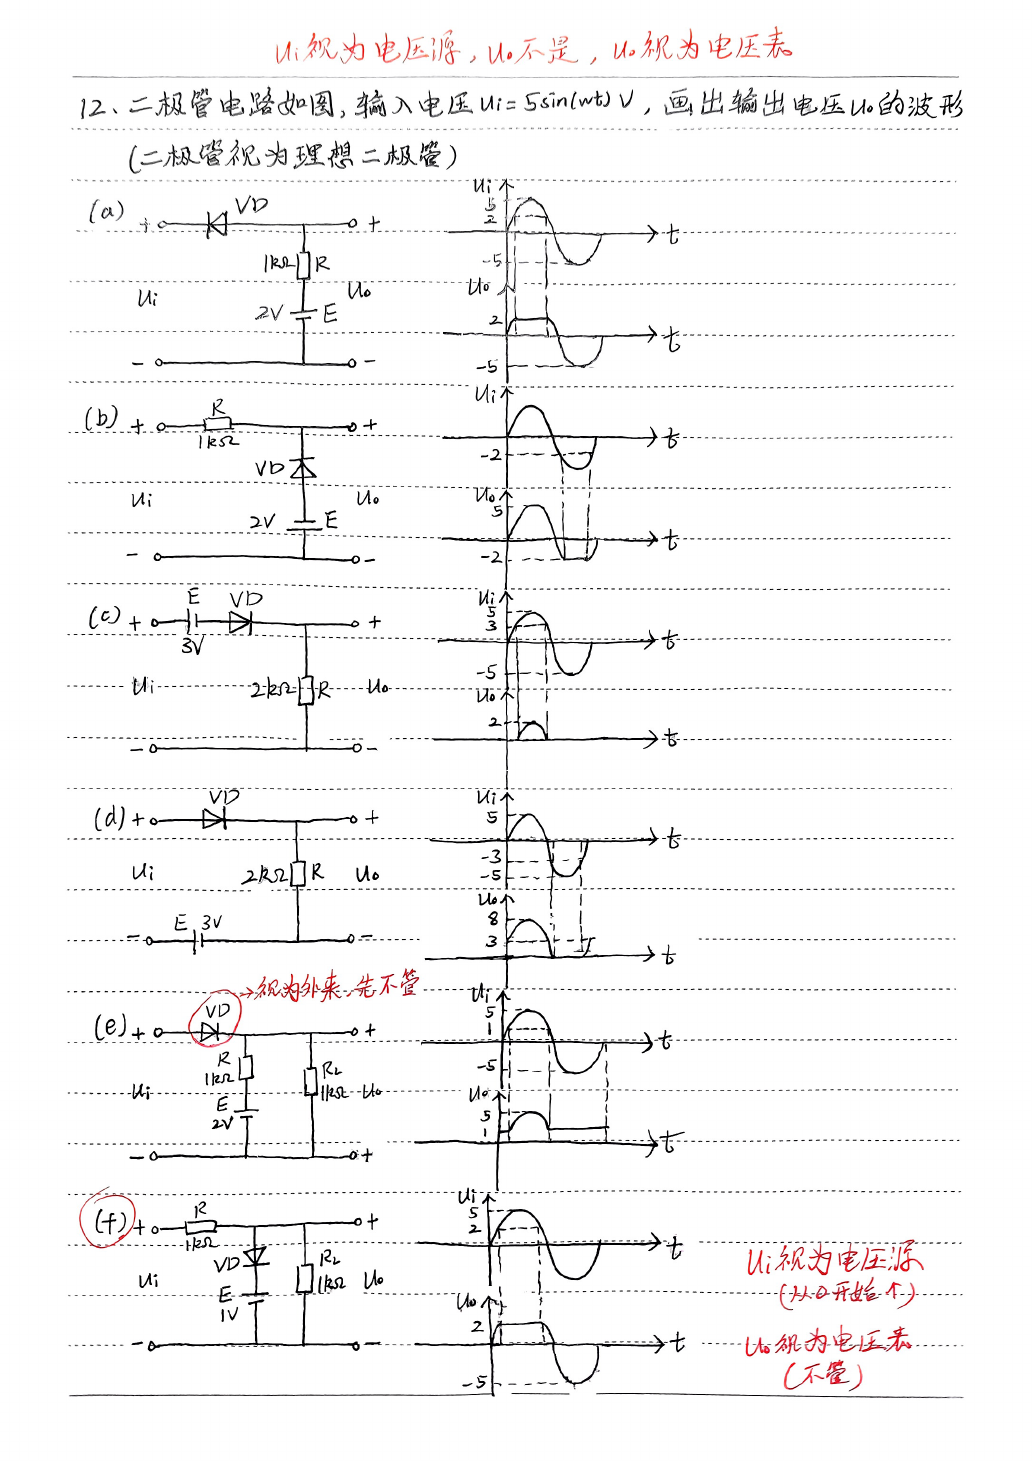 Ui视为电压源，Uo不是，Uo视为电压表
12、二极管电路如图，输入电压Ui=5sin(wt)V，画出输出电压Uo的波形
(二极管视为理想二极管)
(a) + VD +
1kΩ R
Ui Uo
2V E
- -
Ui 5 2 -5 t
Uo 2 -5 t
(b) + R +
1kΩ
VD
Ui Uo
2V E
- -
Ui -2 t
Uo 5 -2 t
(c) + E VD +
3V
Ui 2kΩ R Uo
- -
Ui 5 3 -5 t
Uo 2 t
(d) + VD +
Ui 2kΩ R Uo
E 3V
- -
Ui 5 -3 -5 t
Uo 8 3 t
(e) + VD +
→视为外来，先不管
R 1kΩ RL 1kΩ
Ui Uo
E 2V
- +
Ui 5 1 -5 t
Uo 5 1 t
(f) + R +
1kΩ
VD RL 1kΩ
Ui Uo
E 1V
- -
Ui 5 2 t
Uo 2 -5 t
Ui视为电压源
(从0开始↑)
Uo视为电压表
(不管)